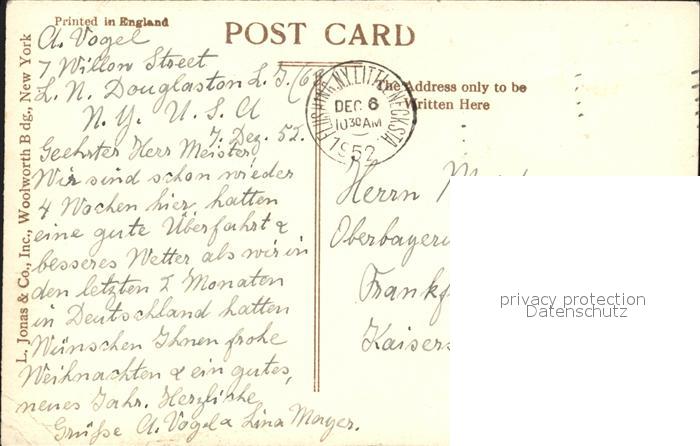 Printed in England
POST CARD
L. Jonas & Co., Inc., Woolworth B dg., New York
A. Vogel
7 Willow Street
L. N. Douglaston L. I. (6
N. Y. U. S. A
7. Dez. 52.
Geehrter Herr Meister,
Wir sind schon wieder
4 Wochen hier, hatten
eine gute Überfahrt &
besseres Wetter als wir in
den letzten 2 Monaten
in Deutschland hatten
Wünschen Ihnen frohe
Weihnachten & ein gutes,
neues Jahr. Herzliche
Grüße A. Vogel & Lina Mayer.
FLUSHING, N.Y. LITTLE NECK STA.
DEC 6
10 30 AM
1952
The Address only to be
Written Here
Herrn M
Oberbayeri
Frankf
Kaisers
privacy protection
Datenschutz